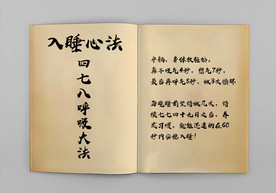 入睡心法
四七八呼吸大法
平躺，身体放轻松，
鼻子吸气4秒，憋气7秒，
最后再呼气8秒，做3次循环
每晚睡前坚持做几次，持
续七七四十九日之后，养成
习惯，就能迅速的在60
秒内安然入睡！